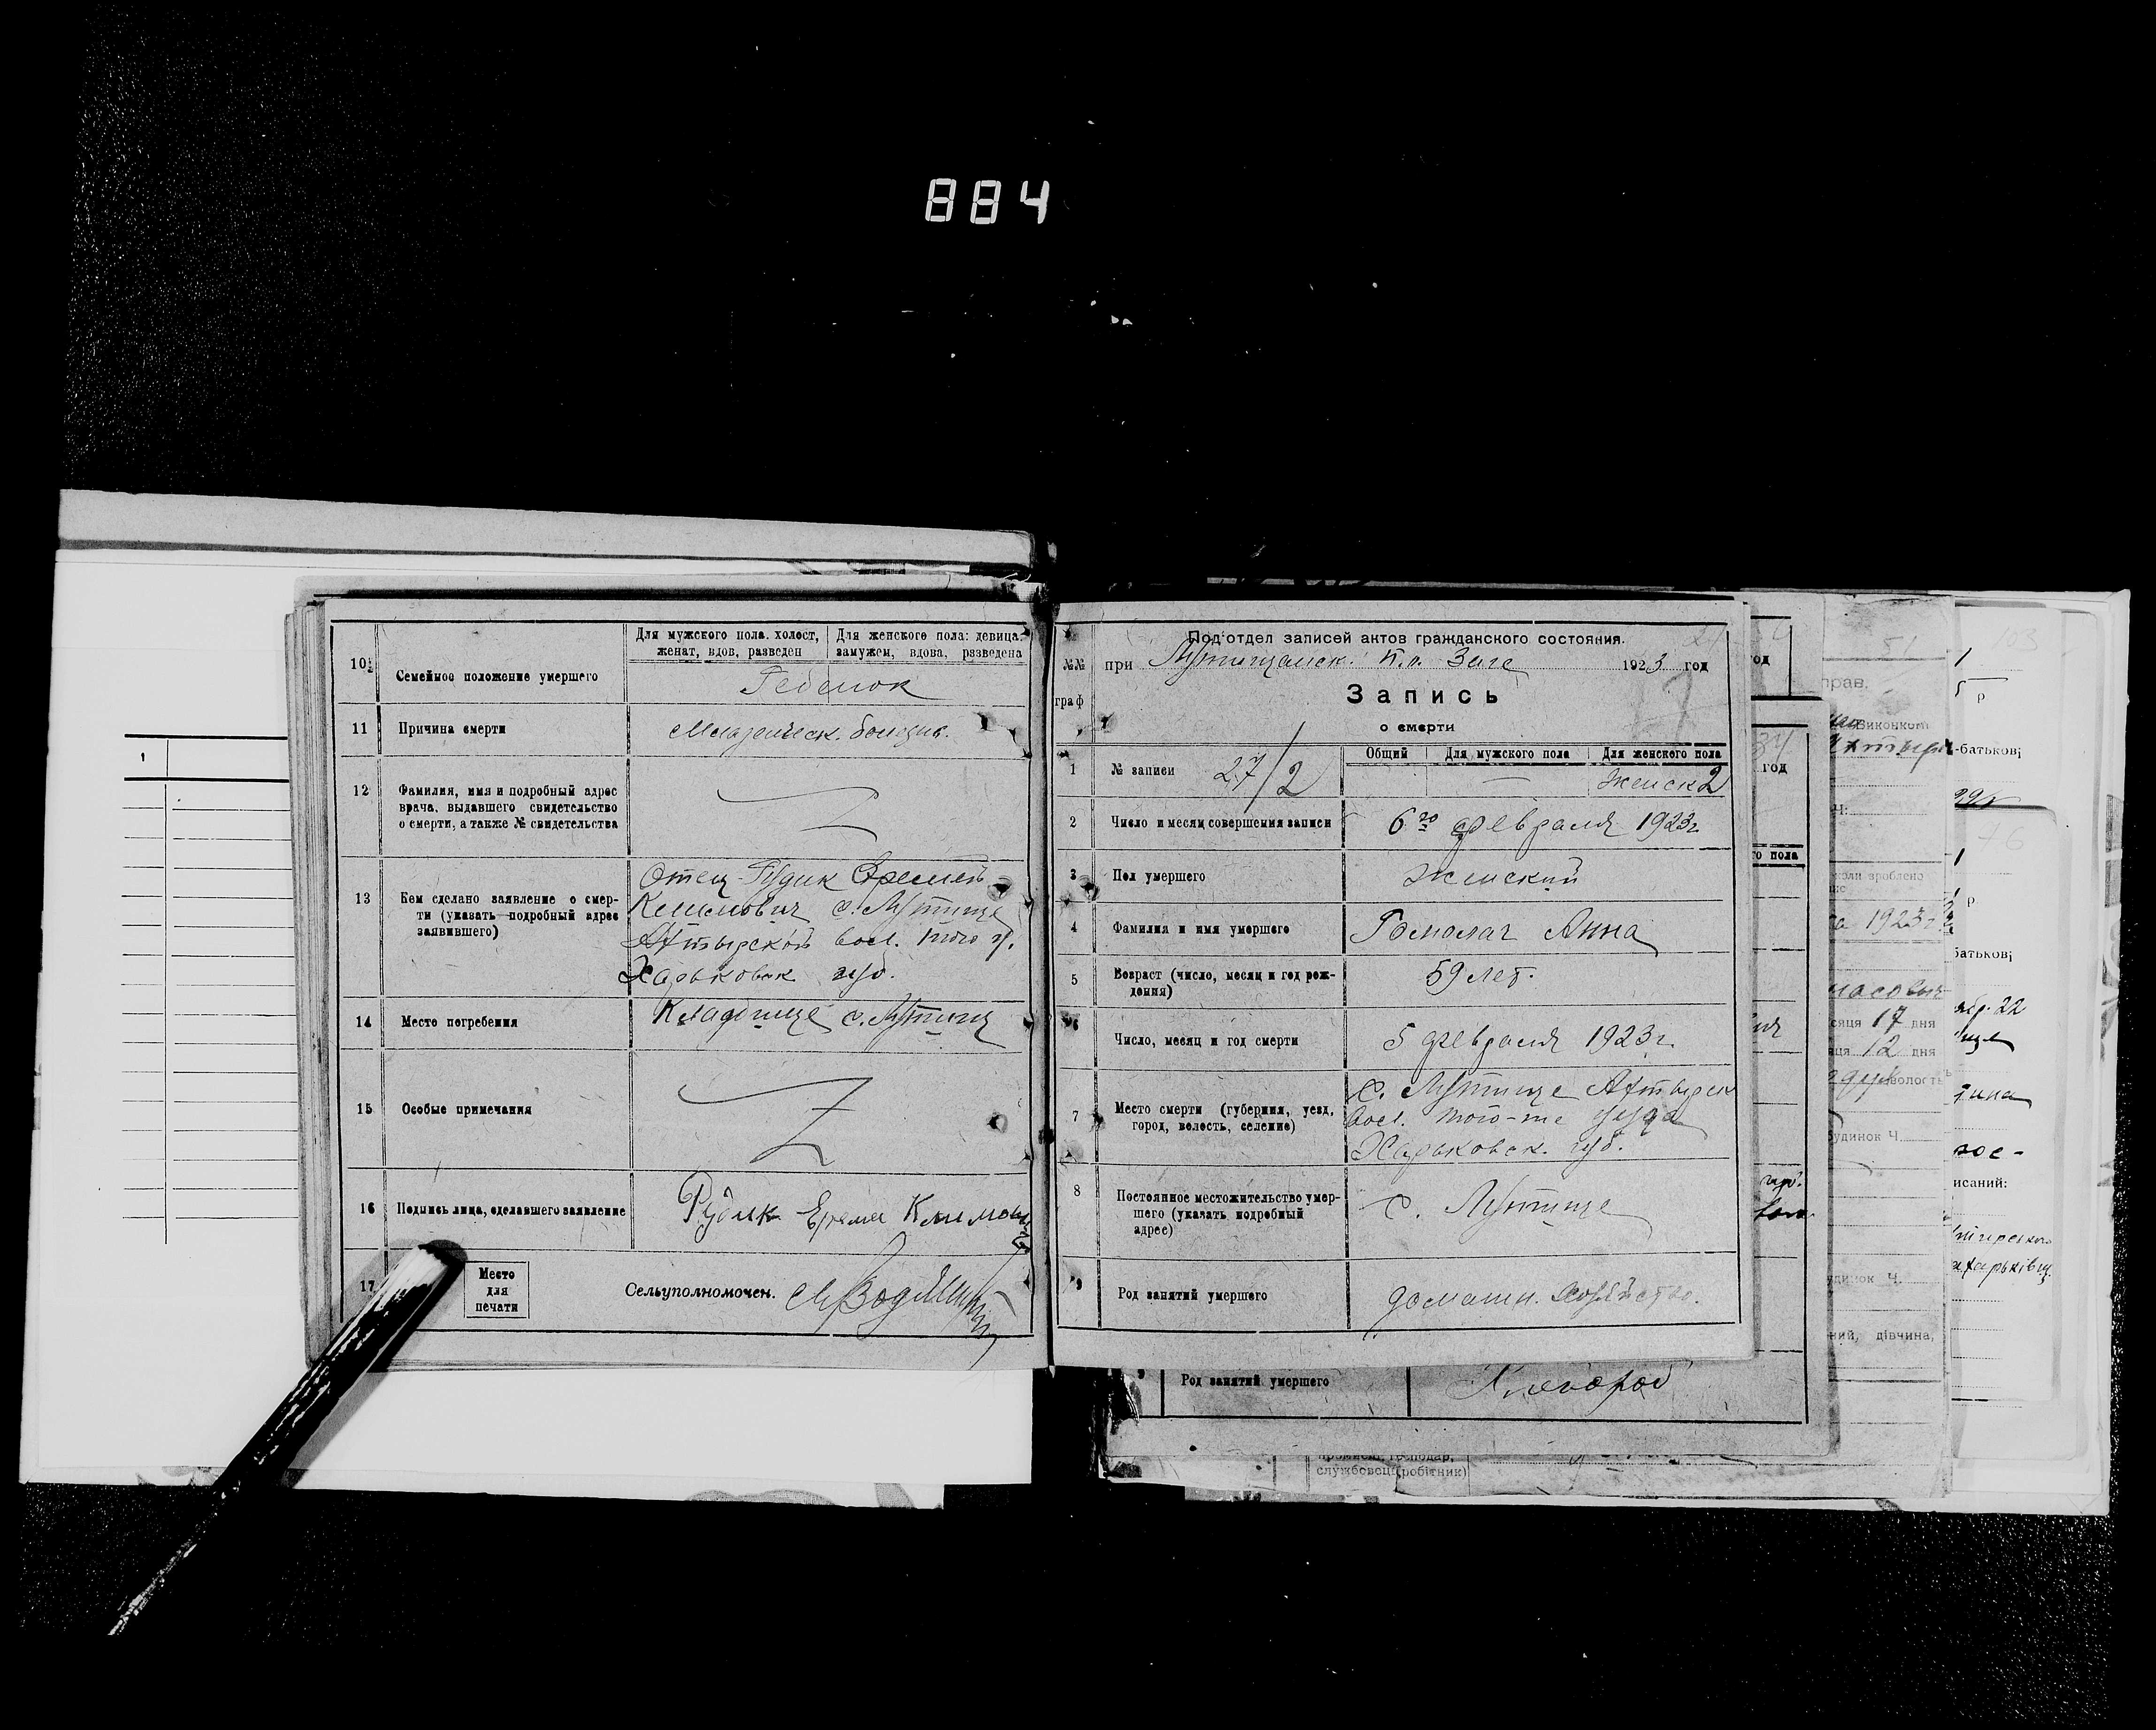 884
10
Семейное положение умершего
Для мужского пола. холост, женат, вдов, разведен
Для женского пола: девица, замужем, вдова, разведена
Ребенок
11
Причина смерти
Младенческ. болезнь.
12
Фамилия, имя и подробный адрес
врача, выдавшего свидетельство
о смерти, а также № свидетельства
13
Кем сделано заявление о смер-
ти (указать подробный адрес
заявившего)
Отец Рудик Еремей
Климович с. Лутище
Ахтырской вол. того у.
Харьковск губ.
14
Место погребения
Кладбище с. Лутищ
15
Особые примечания
16
Подпись лица, сделавшего заявление
Рудик Ерема Климович
17
Место
для
печати
Сельуполномочен.
Под'отдел записей актов гражданского состояния.
№№
граф
при Лутищанск. п.п. Загсе 1923 год
Запись
о смерти
1
№ записи 27/2
Общий
Для мужского пола
Для женского пола
— Женск 2
2
Число и месяц совершения записи
6го февраля 1923г.
3
Пол умершего
Женский
4
Фамилия и имя умершего
Анна
5
Возраст (число, месяц и год рож-
дения)
59 лет.
6
Число, месяц и год смерти
5 февраля 1923 г.
7
Место смерти (губерния, уезд,
город, волость, селение)
с. Лутище Ахтырск
вол. того-же уезда
Харьковск. губ.
8
Постоянное местожительство умер-
шего (указать подробный
адрес)
с. Лутище
9
Род занятий умершего
домашн. хозяйство.
9
Род занятий умершего
Хлебороб
службовец (робітник)
год
34
год
го пола
51
прав.
Виконком
коли зроблено
1923 г
сяця 17 дня
яця 12 дня
волость
будинок Ч.
удинок Ч.
ний, дівчина,
103
р
-батькові
76
р
батькові
исаний: